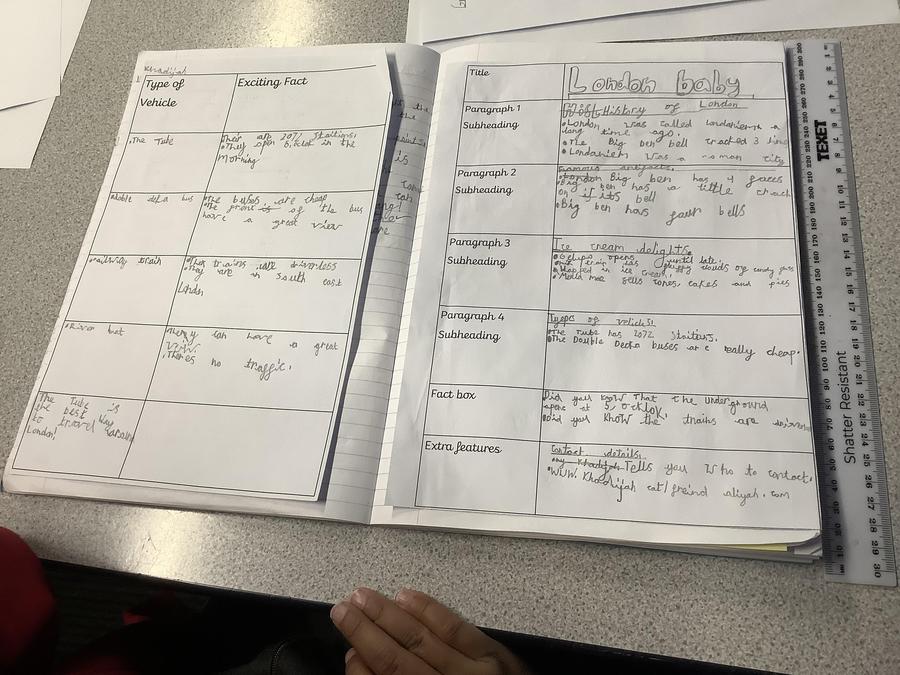 Khadijah
Type of
Vehicle
Exciting Fact
The Tube
Their are 2072 Staitions.
They open 5:oclok in the
Morning
Doble deka bus
The buses are cheap
The front is of the bus
have a great view
railway train
Ther trains are driverless
They are in South east
London
River boat
They can have a great
View
Theres no traffic.
The Tube is
the best way
to travel around
London.
Title
London baby
Paragraph 1
Subheading
History of London
London was called londinium a
long time ago.
The Big ben bell cracked 3 time
Londinium was a roman city
Paragraph 2
Subheading
Famous artifacts.
London Big ben has 4 faces
Big ben has a little crack
on it its bell
Big ben havs fawr bells
Paragraph 3
Subheading
Ice cream delights.
opens until late.
fluffy clouds of candy floss
in ice cream.
sells cones, cakes and pies
Paragraph 4
Subheading
Types of vehicls!
The Tube has 2072 staitiors.
The Double Decka buses are really cheap.
Fact box
Did you know that the underground
opens at 5, oclok.
Did you know the trains are
Extra features
Contact details:
Tells you who to contact.
www. Khadijah cat/freind aliyah.com
TEXET
Shatter Resistant